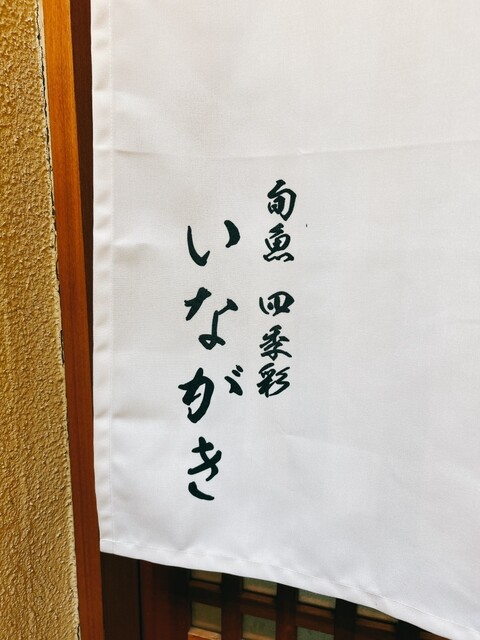 旬魚 四季彩
いながき